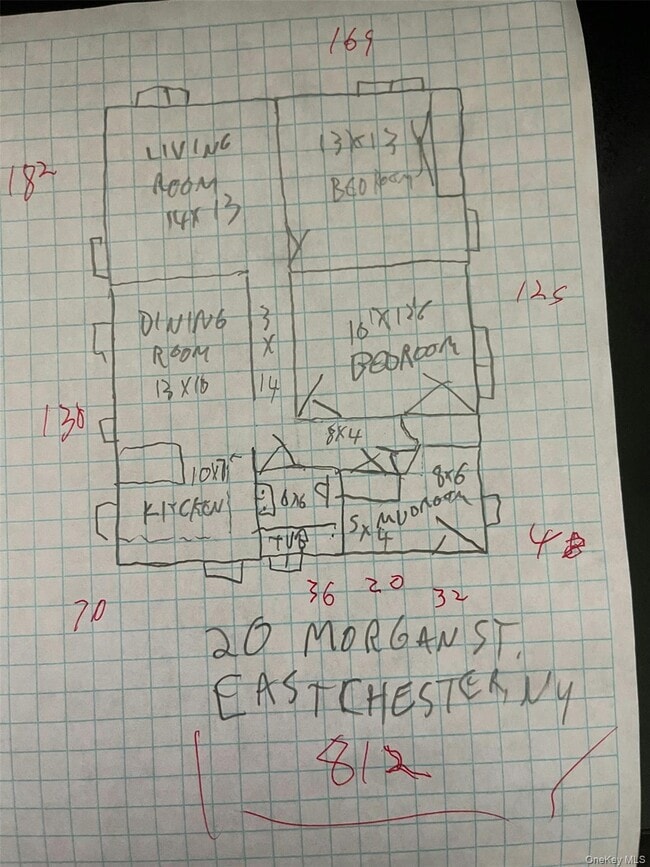 169
182
LIVING
ROOM
14X13
13X13
BEDROOM
125
DINING
ROOM
13X10
3
X
14
BEDROOM
130
8X4
KITCHEN
6X6
8X6
MUDROOM
5X
4
TUB
4
70
36
20
32
20 MORGAN ST.
EASTCHESTER, NY
812
OneKey MLS